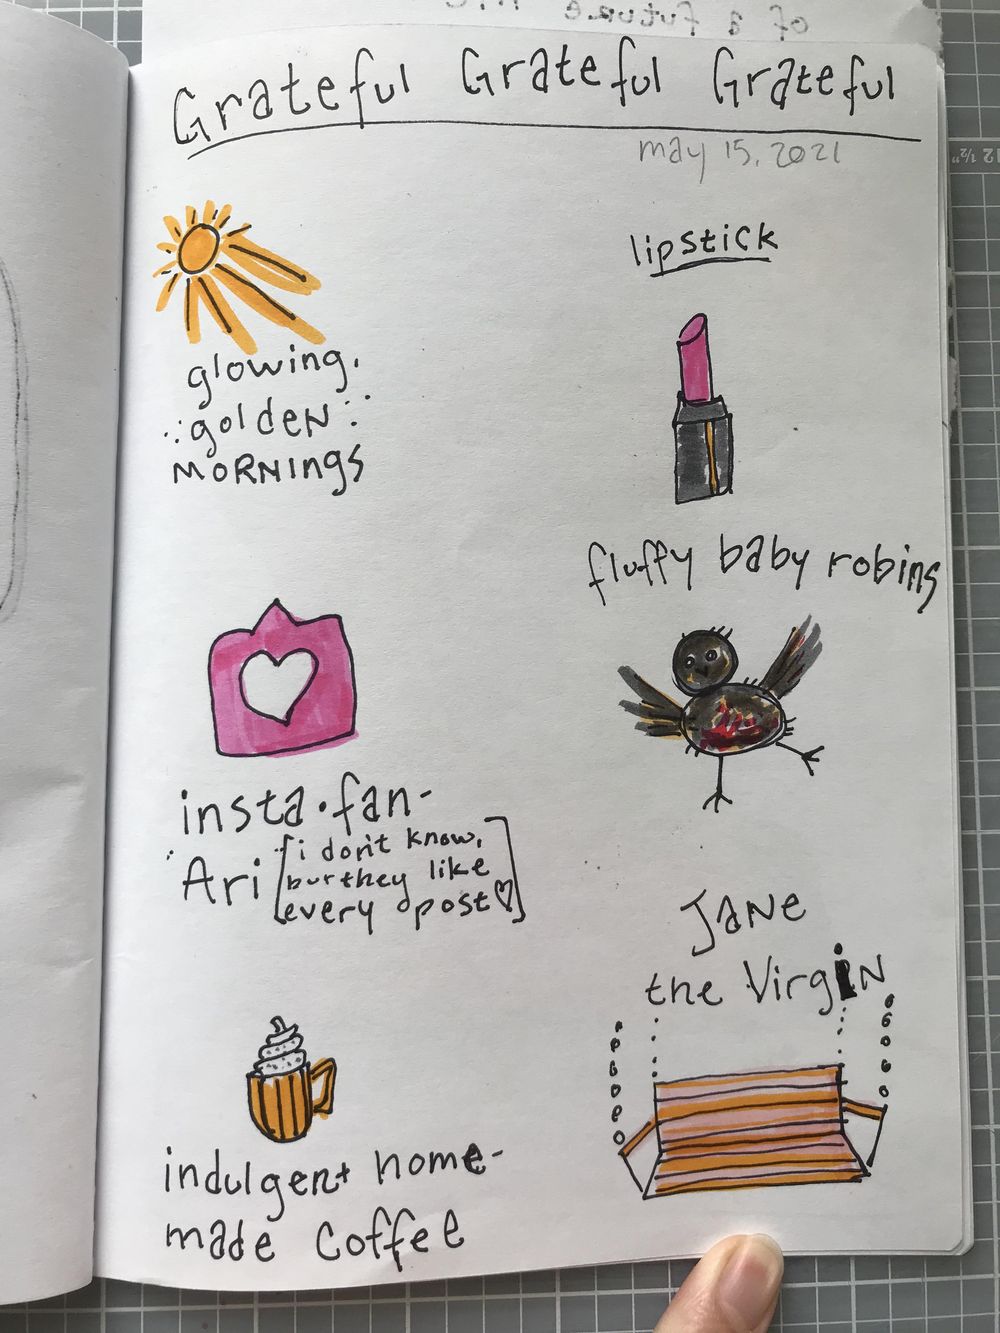 Grateful Grateful Grateful
may 15, 2021
glowing,
golden
MORNINgS
lipstick
fluffy baby robins
insta·fan-
Ari [i don't know,
but they like
every post♡]
JANE
the VirgiN
indulgent home-
made coffee
of a future
12 ½"